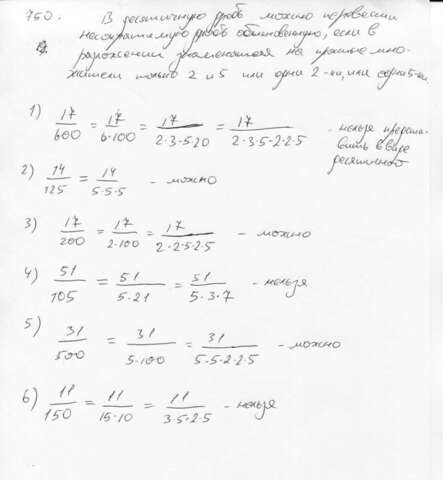 750. В десятичную дробь можно перевести
несократимую дробь обыкновенную, если в
разложении знаменателя на простые мно-
жители только 2 и 5 или одни 2-ки, или одни 5-ки.
1) 17/600 = 17/6·100 = 17/2·3·5·20 = 17/2·3·5·2·2·5 - нельзя предста-
вить в виде
десятичной
2) 14/125 = 14/5·5·5 - можно
3) 17/200 = 17/2·100 = 17/2·2·5·2·5 - можно
4) 51/105 = 51/5·21 = 51/5·3·7 - нельзя
5) 31/500 = 31/5·100 = 31/5·5·2·2·5 - можно
6) 11/150 = 11/15·10 = 11/3·5·2·5 - нельзя